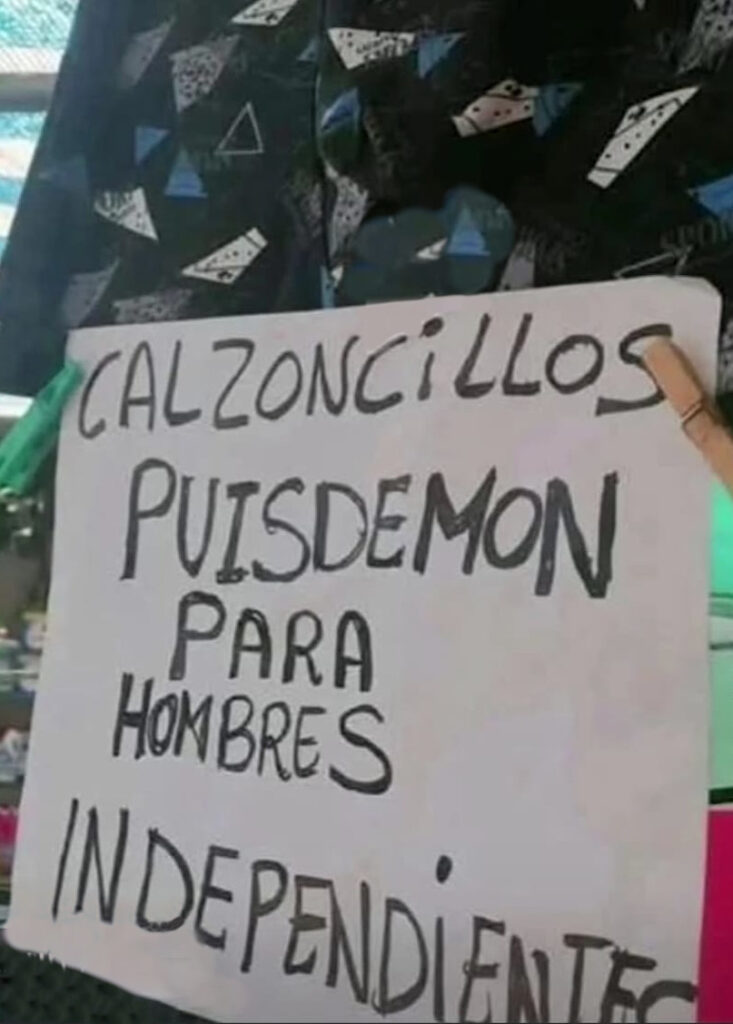 CALZONCiLLOS
PUISDEMON
PARA
HOMBRES
INDEPENDiENTES